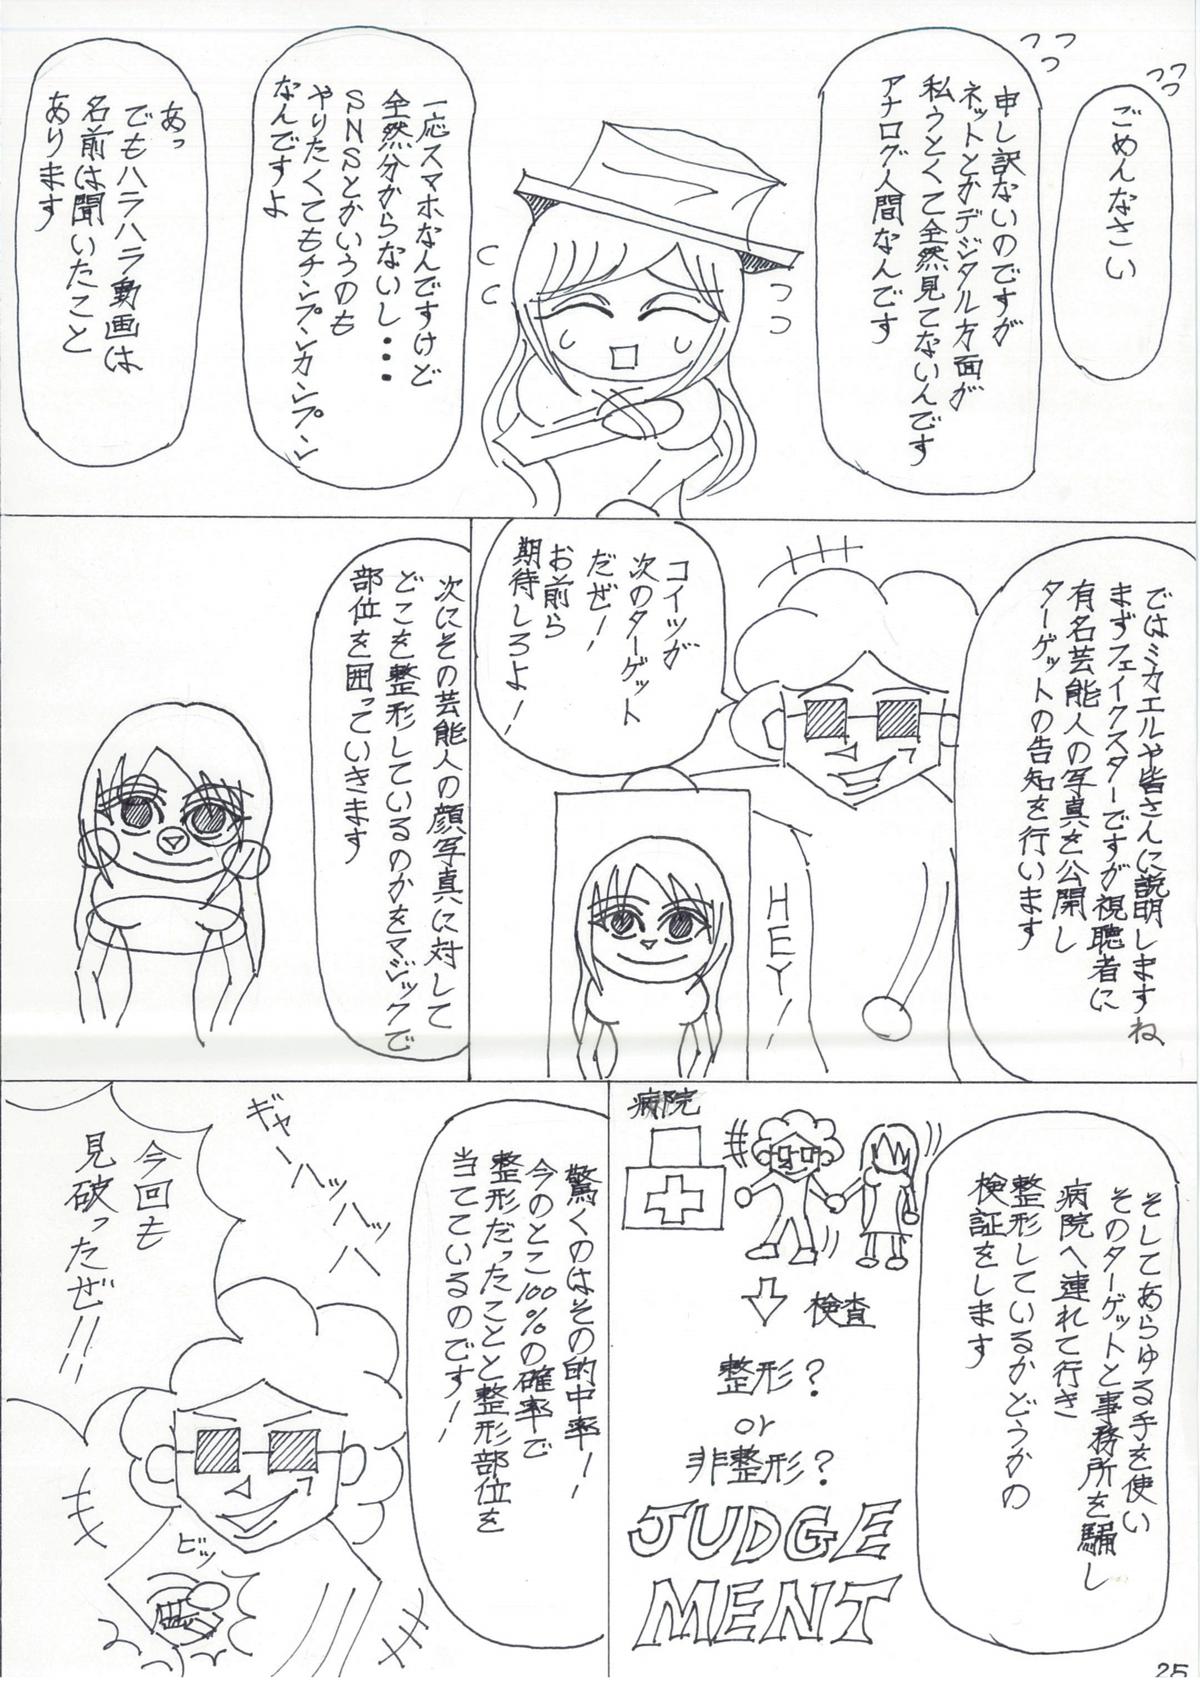 ごめんなさい
申し訳ないのですが
ネットとかデジタル方面が
私うとくて全然見てないんです
アナログ人間なんです
一応スマホなんですけど
全然分からないし・・・
SNSとかいうのも
やりたくてもチンプンカンプン
なんですよ
あっ
でもハラハラ動画は
名前は聞いたこと
あります
ではミカエルや皆さんに説明しますね
まずフェイクスターですが視聴者に
有名芸能人の写真を公開し
ターゲットの告知を行います
コイツが
次のターゲット
だぜ!
お前ら
期待しろよ!
HEY!
次にその芸能人の顔写真に対して
どこを整形しているのかをマジックで
部位を囲っていきます
そしてあらゆる手を使い
そのターゲットと事務所を騙し
病院へ連れて行き
整形しているかどうかの
検証をします
病院
検査
整形?
or
非整形?
JUDGE
MENT
驚くのはその的中率!
今のとこ100%の確率で
整形だったことと整形部位を
当てているのです!
ギャーハッハッハ
今回も
見破ったぜ!!
ビッ
25